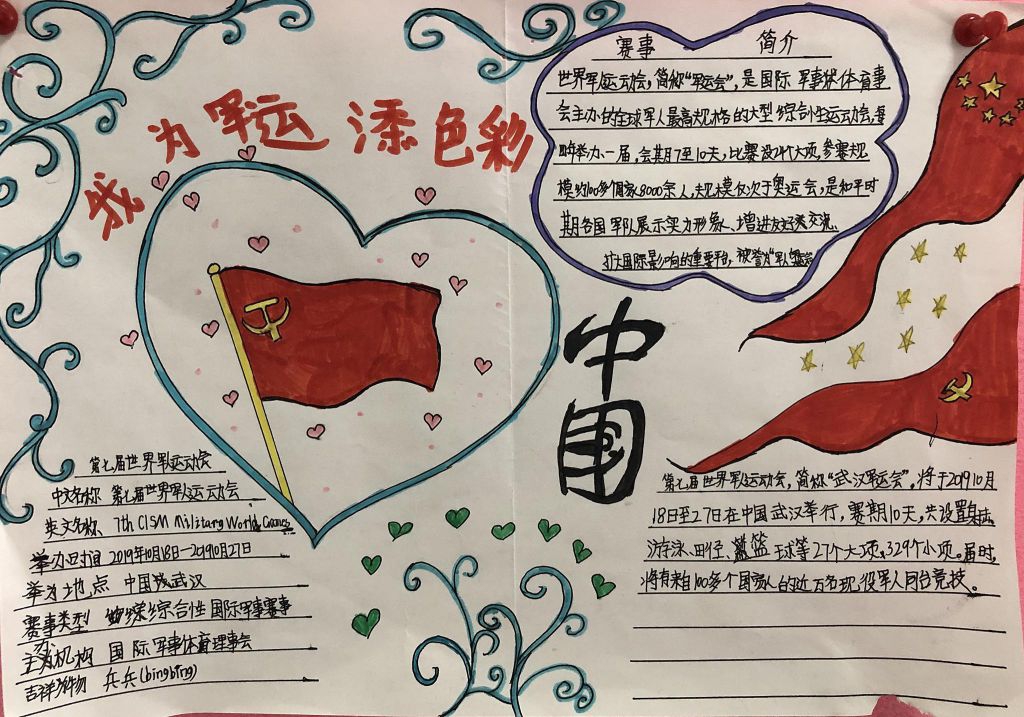 我为军运添色彩
赛事 简介
世界军人运动会，简称“军运会”，是国际军事体育事
会主办的全球军人最高规格的大型综合性运动会，每
四年举办一届，会期7至10天，比赛设24个大项，参赛规
模约100多个国家8000余人，规模仅次于奥运会，是和平时
期各国军队展示实力形象、增进友好交流、
扩大国际影响的重要平台，被誉为“军人奥运会
中国
第七届世界军人运动会
中文名称 第七届世界军人运动会
英文名称 7th CISM Military World Games
举办时间 2019年10月18日—201910月27日
举办地点 中国 武汉
赛事类型 综合性国际军事赛事
主办机构 国际军事体育理事会
吉祥物 兵兵(bingbing)
第七届世界军人运动会，简称“武汉军运会”，将于201910月
18日至27日在中国武汉举行，赛期10天，共设置射击、
游泳、田径、篮球等27个大项、329个小项。届时，
将有来自100多个国家的近万名现役军人同台竞技。